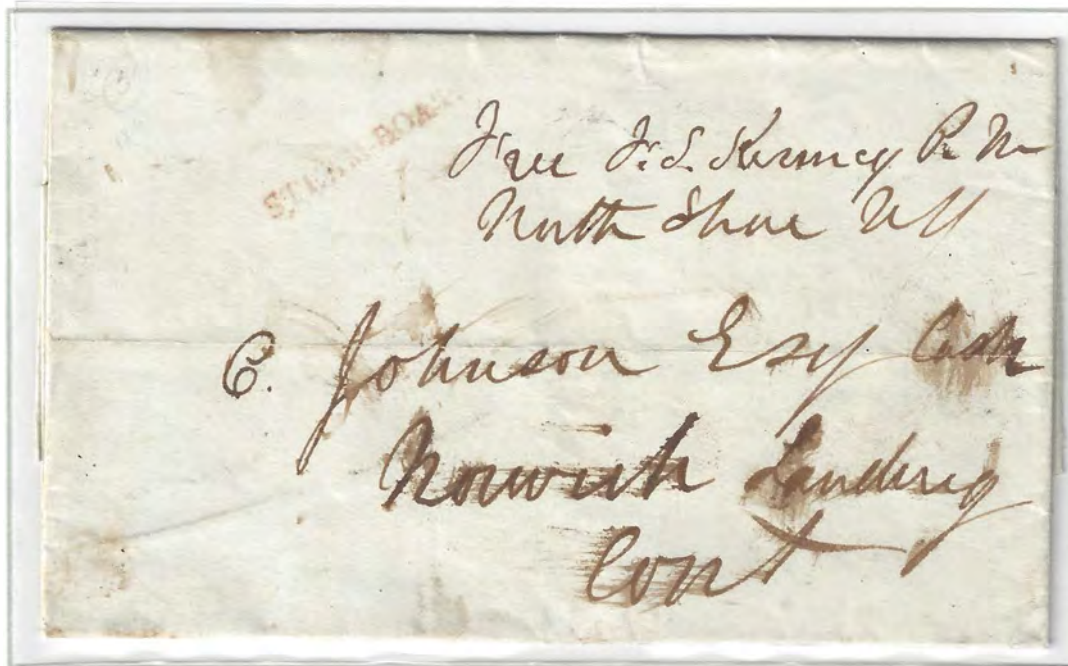 STEAMBOAT
Free J. S. Kinney P. M
North Shore NY
C. Johnson Esq Cash
Norwich Landing
Cont